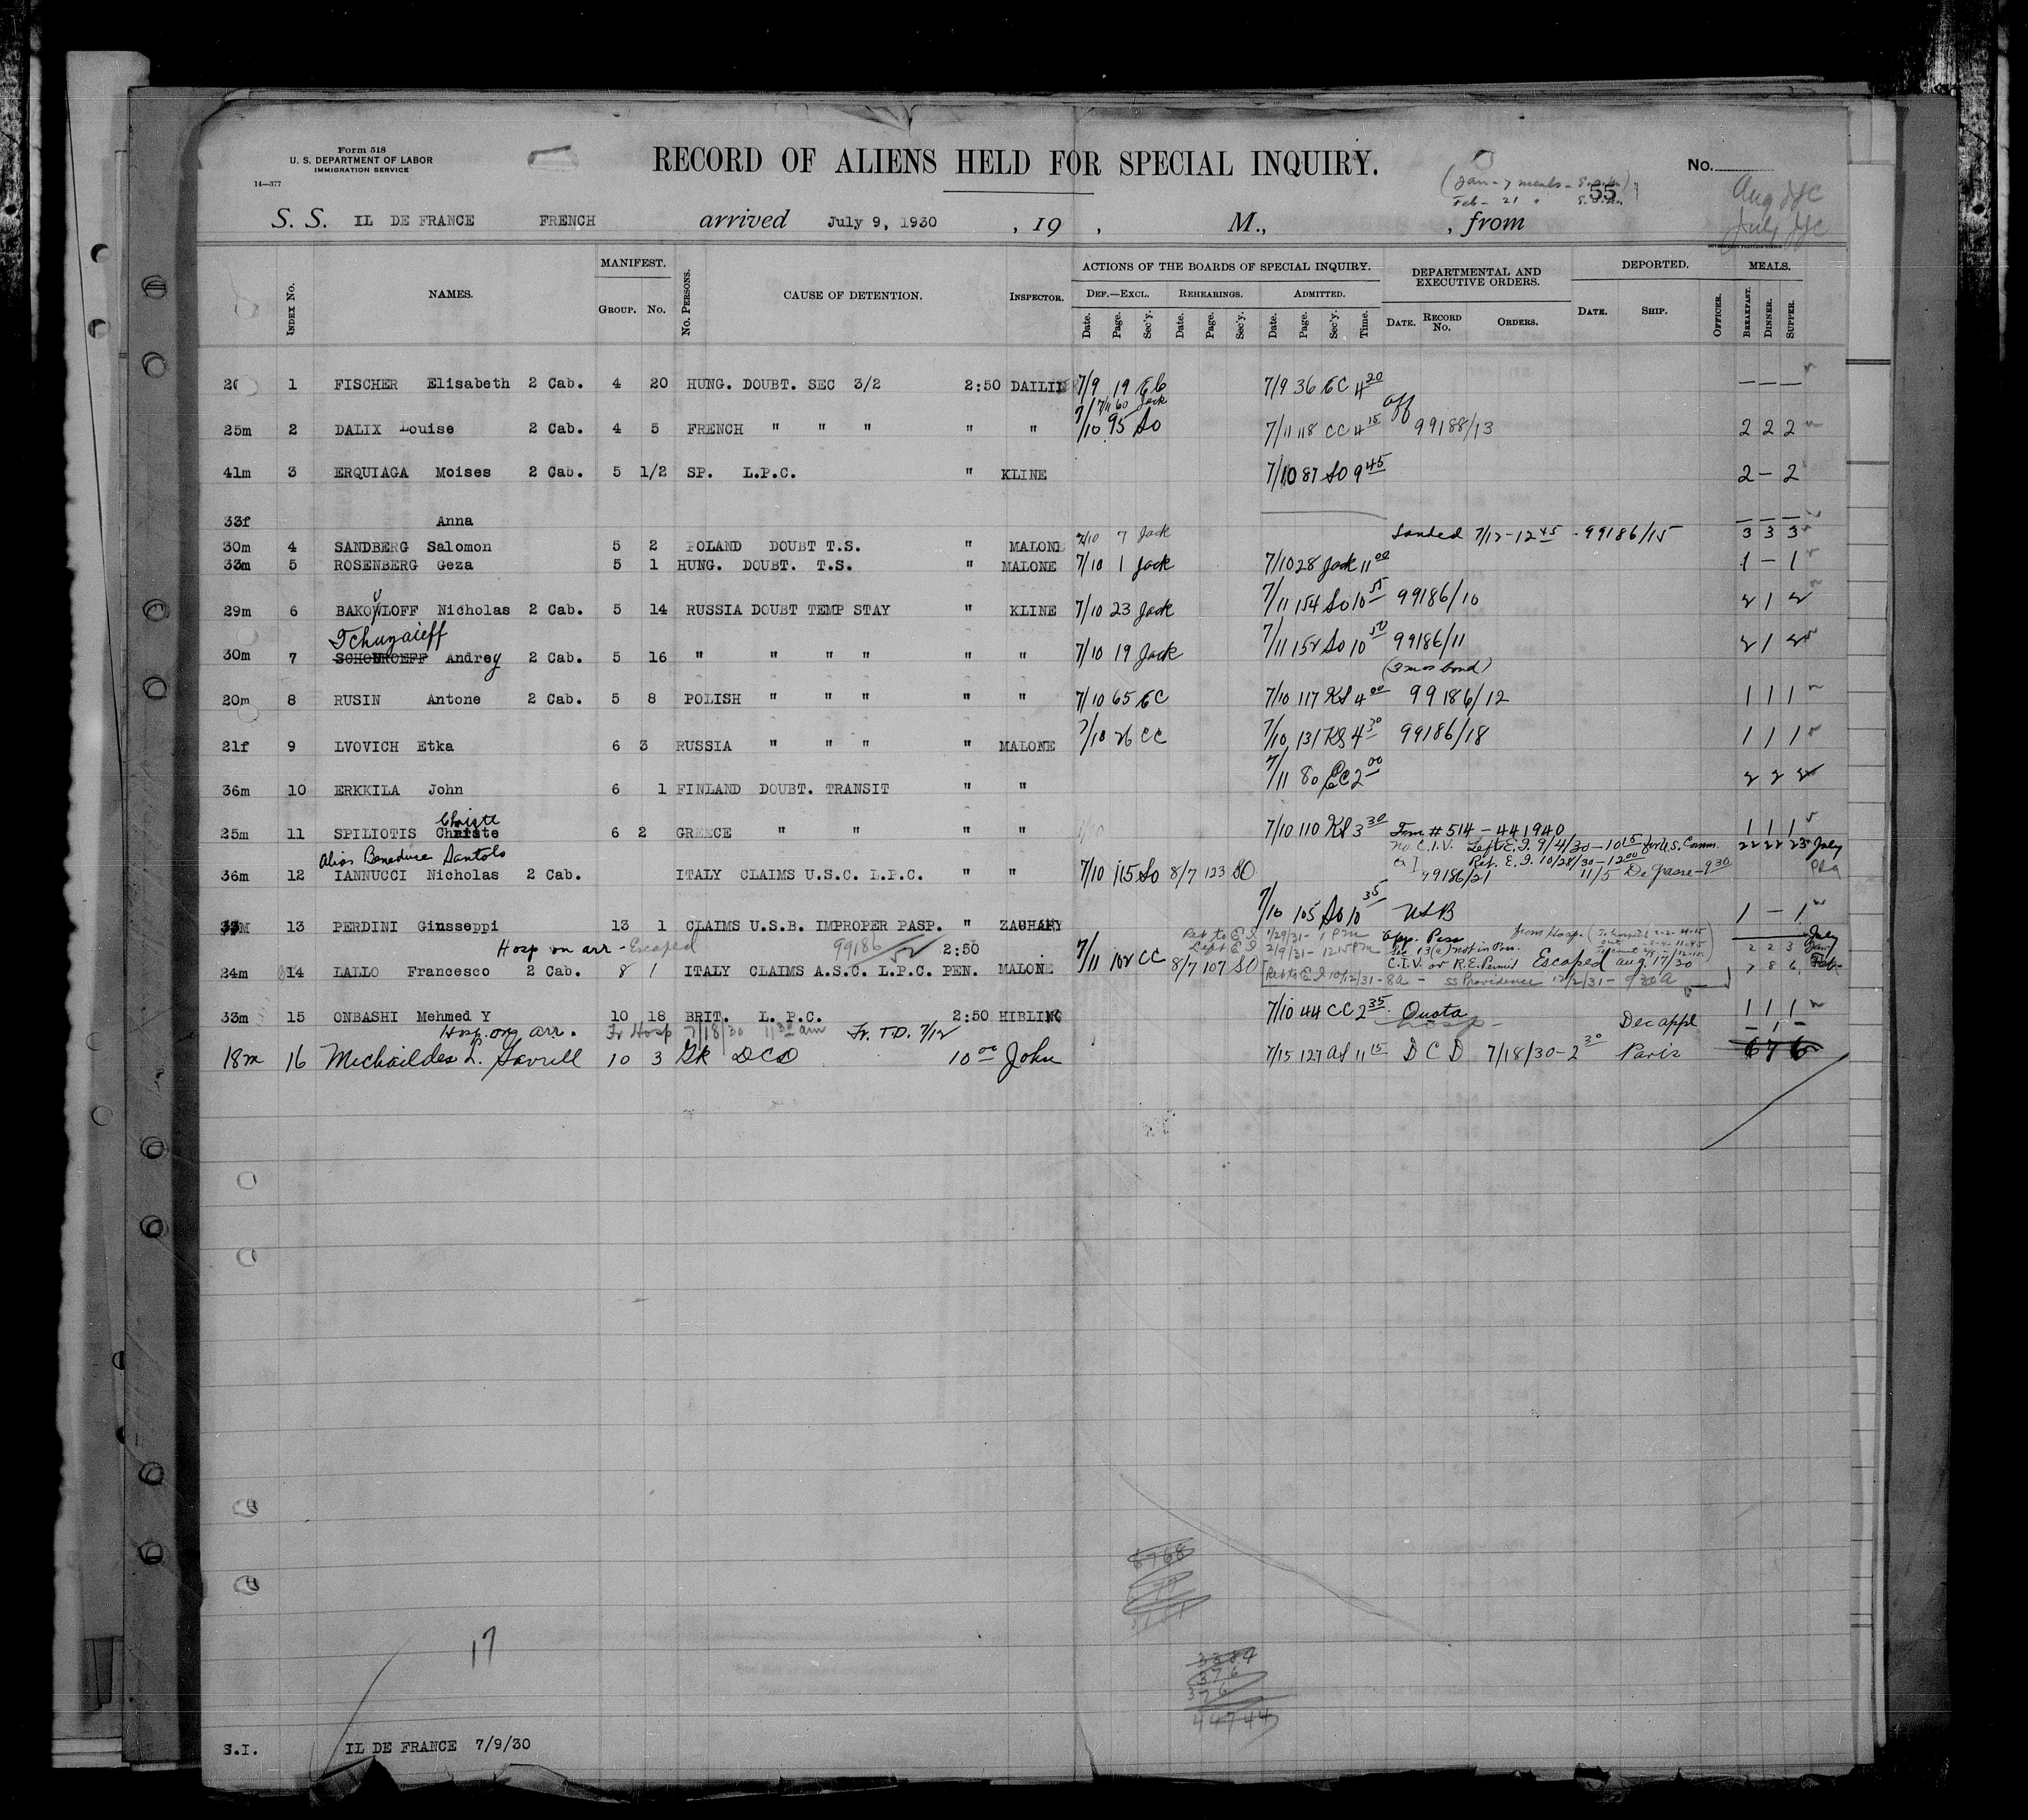 Form 518
U. S. DEPARTMENT OF LABOR
IMMIGRATION SERVICE
14—377
RECORD OF ALIENS HELD FOR SPECIAL INQUIRY.
No.
(Jan - 7 meals -
Feb - 21 "
55
Aug
July
S. S. IL DE FRANCE FRENCH arrived July 9, 1930 , 19 , M., , from
INDEX No. NAMES. MANIFEST. GROUP. No. No. PERSONS. CAUSE OF DETENTION. INSPECTOR. ACTIONS OF THE BOARDS OF SPECIAL INQUIRY. DEF.—EXCL. Date. Page. Sec'y. REHEARINGS. Date. Page. Sec'y. ADMITTED. Date. Page. Sec'y. Time. DEPARTMENTAL AND EXECUTIVE ORDERS. DATE. RECORD No. ORDERS. DEPORTED. DATE. SHIP. OFFICER. MEALS. BREAKFAST. DINNER. SUPPER.
1 FISCHER Elisabeth 2 Cab. 4 20 HUNG. DOUBT. SEC 3/2 2:50 DAILIN 7/9 19 EC 7/9 36 EC 4 20 — — —
7/11 60 Jack
25m 2 DALIX Louise 2 Cab. 4 5 FRENCH " " " " " 7/10 95 SO 7/11 118 CC 4 15 Off 99188/13 2 2 2
41m 3 ERQUIAGA Moises 2 Cab. 5 1/2 SP. L.P.C. " KLINE 7/10 87 SO 9 45 2 — 2
33f Anna — — —
30m 4 SANDBERG Salomon 5 2 POLAND DOUBT T.S. " MALONE 7/10 7 Jack Landed 7/12 - 12 45 - 99186/15 3 3 3
33m 5 ROSENBERG Geza 5 1 HUNG. DOUBT. T.S. " MALONE 7/10 1 Jack 7/10 28 Jack 11 00 1 — 1
29m 6 BAKOWLOFF Nicholas 2 Cab. 5 14 RUSSIA DOUBT TEMP STAY " KLINE 7/10 23 Jack 7/11 154 SO 10 55 99186/10 2 1 2
Tchugaieff
30m 7 Andrey 2 Cab. 5 16 " " " " " " 7/10 19 Jack 7/11 152 SO 10 50 99186/11 2 1 2
(3 mos bond)
20m 8 RUSIN Antone 2 Cab. 5 8 POLISH " " " " " 7/10 65 EC 7/10 117 KS 4 00 99186/12 1 1 1
21f 9 LVOVICH Etka 6 3 RUSSIA " " " " MALONE 7/10 26 CC 7/10 131 KS 4 30 99186/18 1 1 1
36m 10 ERKKILA John 6 1 FINLAND DOUBT. TRANSIT " " 7/11 80 EC 2 00 2 2 2
Christe
25m 11 SPILIOTIS Christe 6 2 GREECE " " " " 7/10 110 KS 3 30 Form # 514 - 441940 1 1 1
No C.I.V. Left E.I. 9/4/30 - 10 15 for U.S. Comm. 22 22 23 July
Alias Beneduce Santolo Ret. E.I. 10/28/30 - 12 00
36m 12 IANNUCCI Nicholas 2 Cab. ITALY CLAIMS U.S.C. L.P.C. " " 7/10 115 SO 8/7 123 SO 99186/21 11/5 De Grasse - 9 30
13 PERDINI Giusseppi 13 1 CLAIMS U.S.B. IMPROPER PASP. " ZACHARY 7/10 105 SO 10 35 USB 1 — 1
Hosp on arr - Escaped 99186/52 2:50 Ret to E I 1/29/31 - 1 PM Opp. Pass from Hosp.
Left E I 2/9/31 - 12 15 PM Sec 13(a) not in Poss. 2 2 3
24m 14 LALLO Francesco 2 Cab. 8 1 ITALY CLAIMS A.S.C. L.P.C. PEN. MALONE 7/11 102 CC 8/7 107 SO C.I.V. or R.E. Permit Escaped Aug. 17/30 7 8 6 Feb
Ret to E I 10/12/31 - 8a - SS Providence 12/2/31 - 9 30 A
33m 15 ONBASHI Mehmed Y 10 18 BRIT. L. P.C. 2:50 HIBLING 7/10 44 CC 2 35 Quota 1 1 1
Hosp. on arr. Fr Hosp 7/18/30 11 30 am Fr. T.D. 7/12 Hosp - Dec appl — 1 —
18m 16 Michaildes L. Savrill 10 3 Gk DCD 10 00 John 7/15 127 AS 11 15 D C D 7/18/30 - 2 30 Paris 6 7 6
6768
3384
376
376
44744
17
S.I. IL DE FRANCE 7/9/30